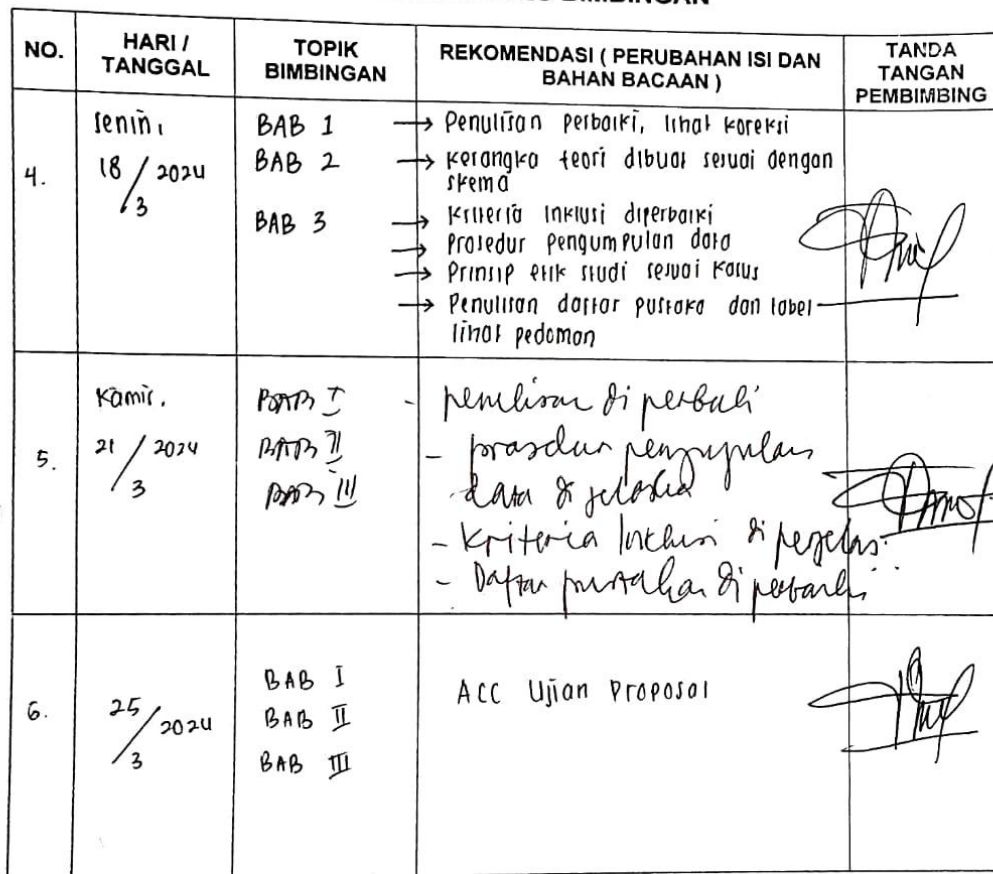 BIMBINGAN
NO.
HARI /
TANGGAL
TOPIK
BIMBINGAN
REKOMENDASI ( PERUBAHAN ISI DAN
BAHAN BACAAN )
TANDA
TANGAN
PEMBIMBING
4.
Senin,
18/3 2024
BAB 1
→ Penulisan perbaiki, lihat koreksi
BAB 2
→ kerangka teori dibuat sesuai dengan
skema
BAB 3
→ Kriteria Inklusi diperbaiki
→ Prosedur pengumpulan data
→ Prinsip etik studi sesuai kasus
→ Penulisan daftar pustaka dan tabel
lihat pedoman
5.
Kamis.
21/3 2024
BAB I
BAB II
BAB III
- penulisan di perbaiki
- prosedur
data di
- Kriteria Inklusi di perjelas.
- Daftar di perbaiki
6.
25/3 2024
BAB I
BAB II
BAB III
Acc Ujian Proposal